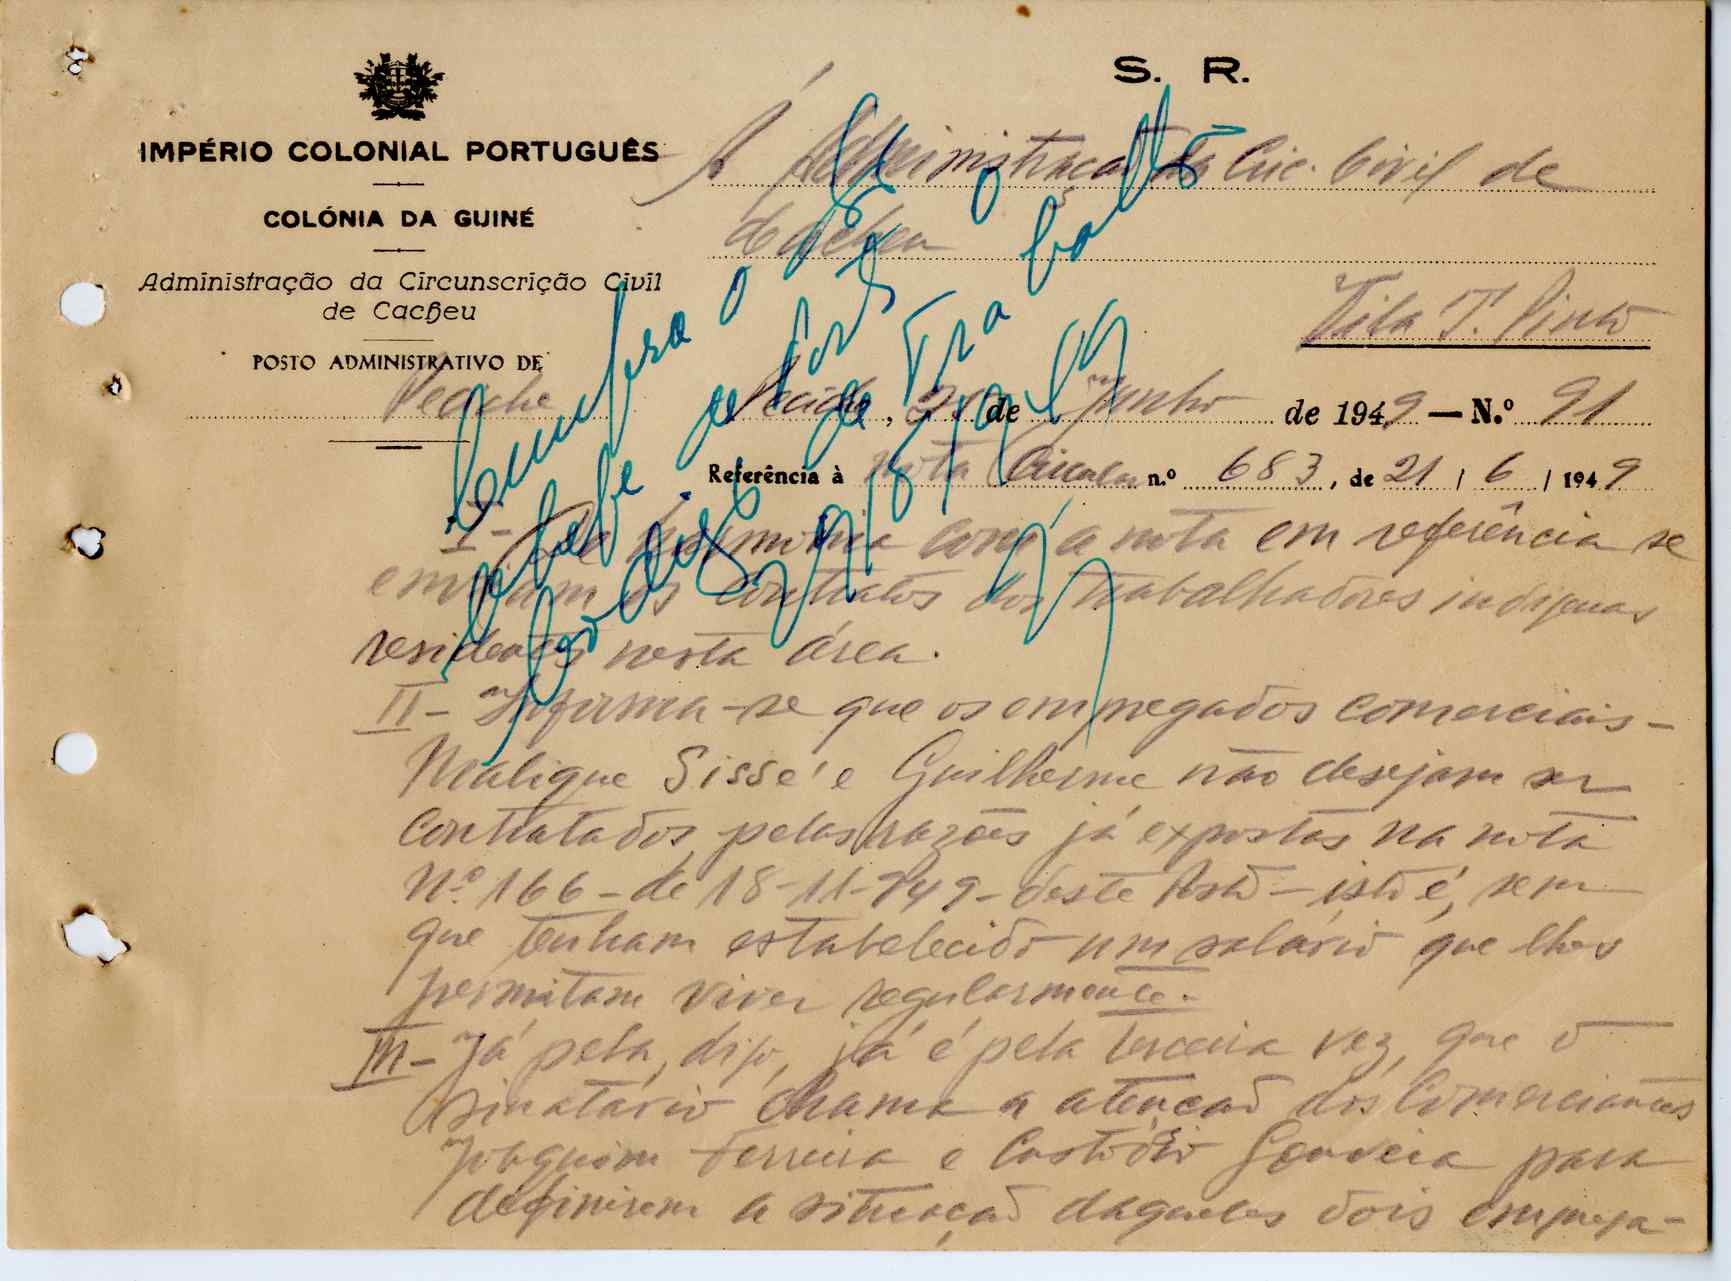 S. R.
IMPÉRIO COLONIAL PORTUGUÊS
COLÓNIA DA GUINÉ
Administração da Circunscrição Civil
de Cacheu
POSTO ADMINISTRATIVO DE
Pecixe
À Administração da Circ. Civil de
Cacheu
Vila T. Pinto
Pecixe, de Junho de 1949 — N.º 91
Referência à nota Circular n.º 683, de 21 / 6 / 1949
I - De harmonia com a nota em referência se
enviam os contratos dos trabalhadores indígenas
residentes nesta área.
II - Informa-se que os empregados comerciais -
Malique Sissé e Guilherme não desejam ser
contratados, pelas razões já expostas na nota
Nº 166 - de 18-11-949 - deste Posto - isto é, sem
que tenham estabelecido um salário que lhes
permitam viver regularmente.
III - Já pela, digo, já é pela terceira vez, que o
sinatário chama a atenção dos Comerciantes
Joaquim Ferreira e Custódio Gouveia para
definirem a situação daqueles dois emprega-
Cumpra o
de o
Código de Trabalho